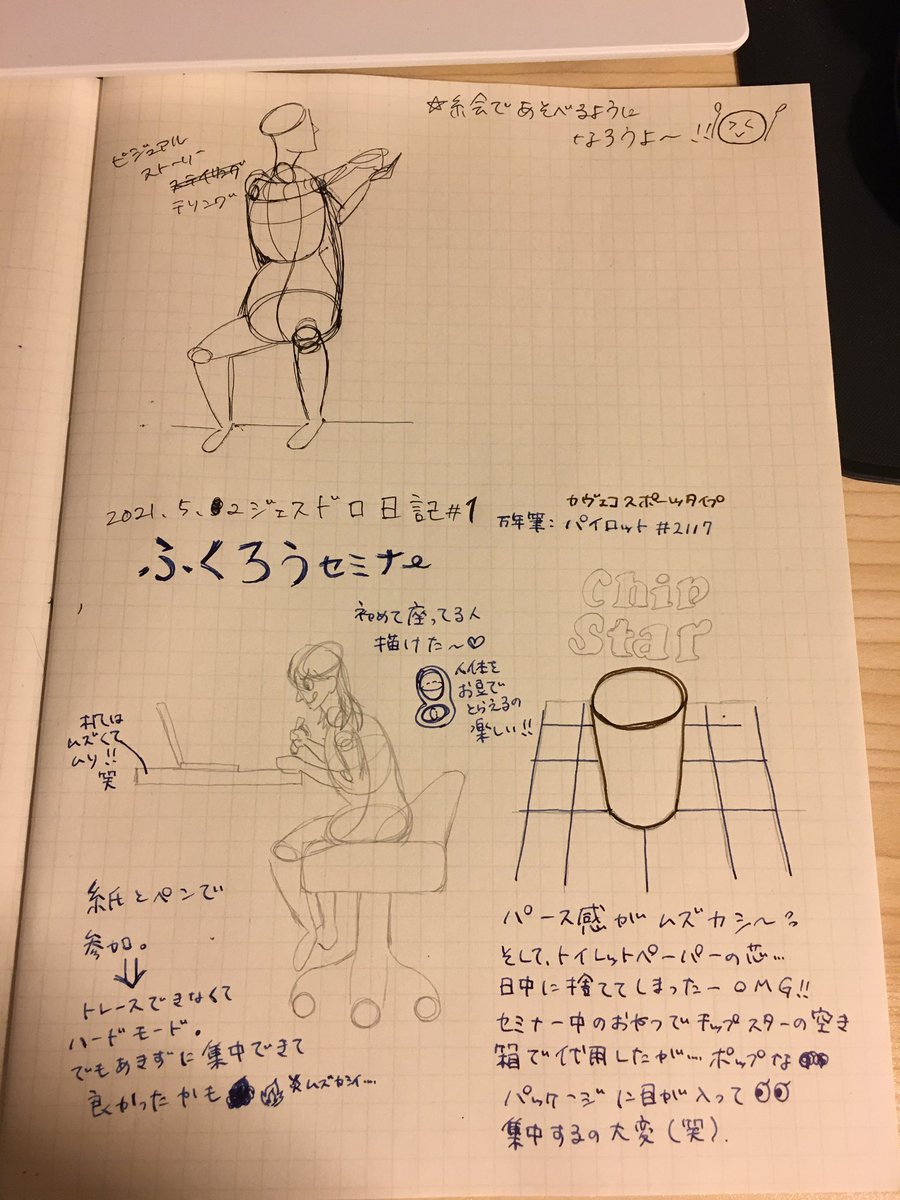 ☆絵であそべるように
なろうよ〜!!
ビジュアル
ストーリー
テリング
2021.5.2ジェスドロ日記#1
カヴェコスポーツタイプ
万年筆:パイロット#2117
ふくろうセミナー
初めて座ってる人
描けた〜♡
人体を
お豆で
とらえるの
楽しい!!
机は
ムズくて
ムリ!!
笑
Chip
Star
紙とペンで
参加。
⇓
トレースできなくて
ハードモード。
でもあきずに集中できて
良かったかも
炎ムズカシイ…
パース感がムズカシ〜。
そして、トイレットペーパーの芯…
日中に捨ててしまったーOMG!!
セミナー中のおやつでチップスターの空き
箱で代用したが…ポップな
パッケージに目が入って
集中するの大変(笑).